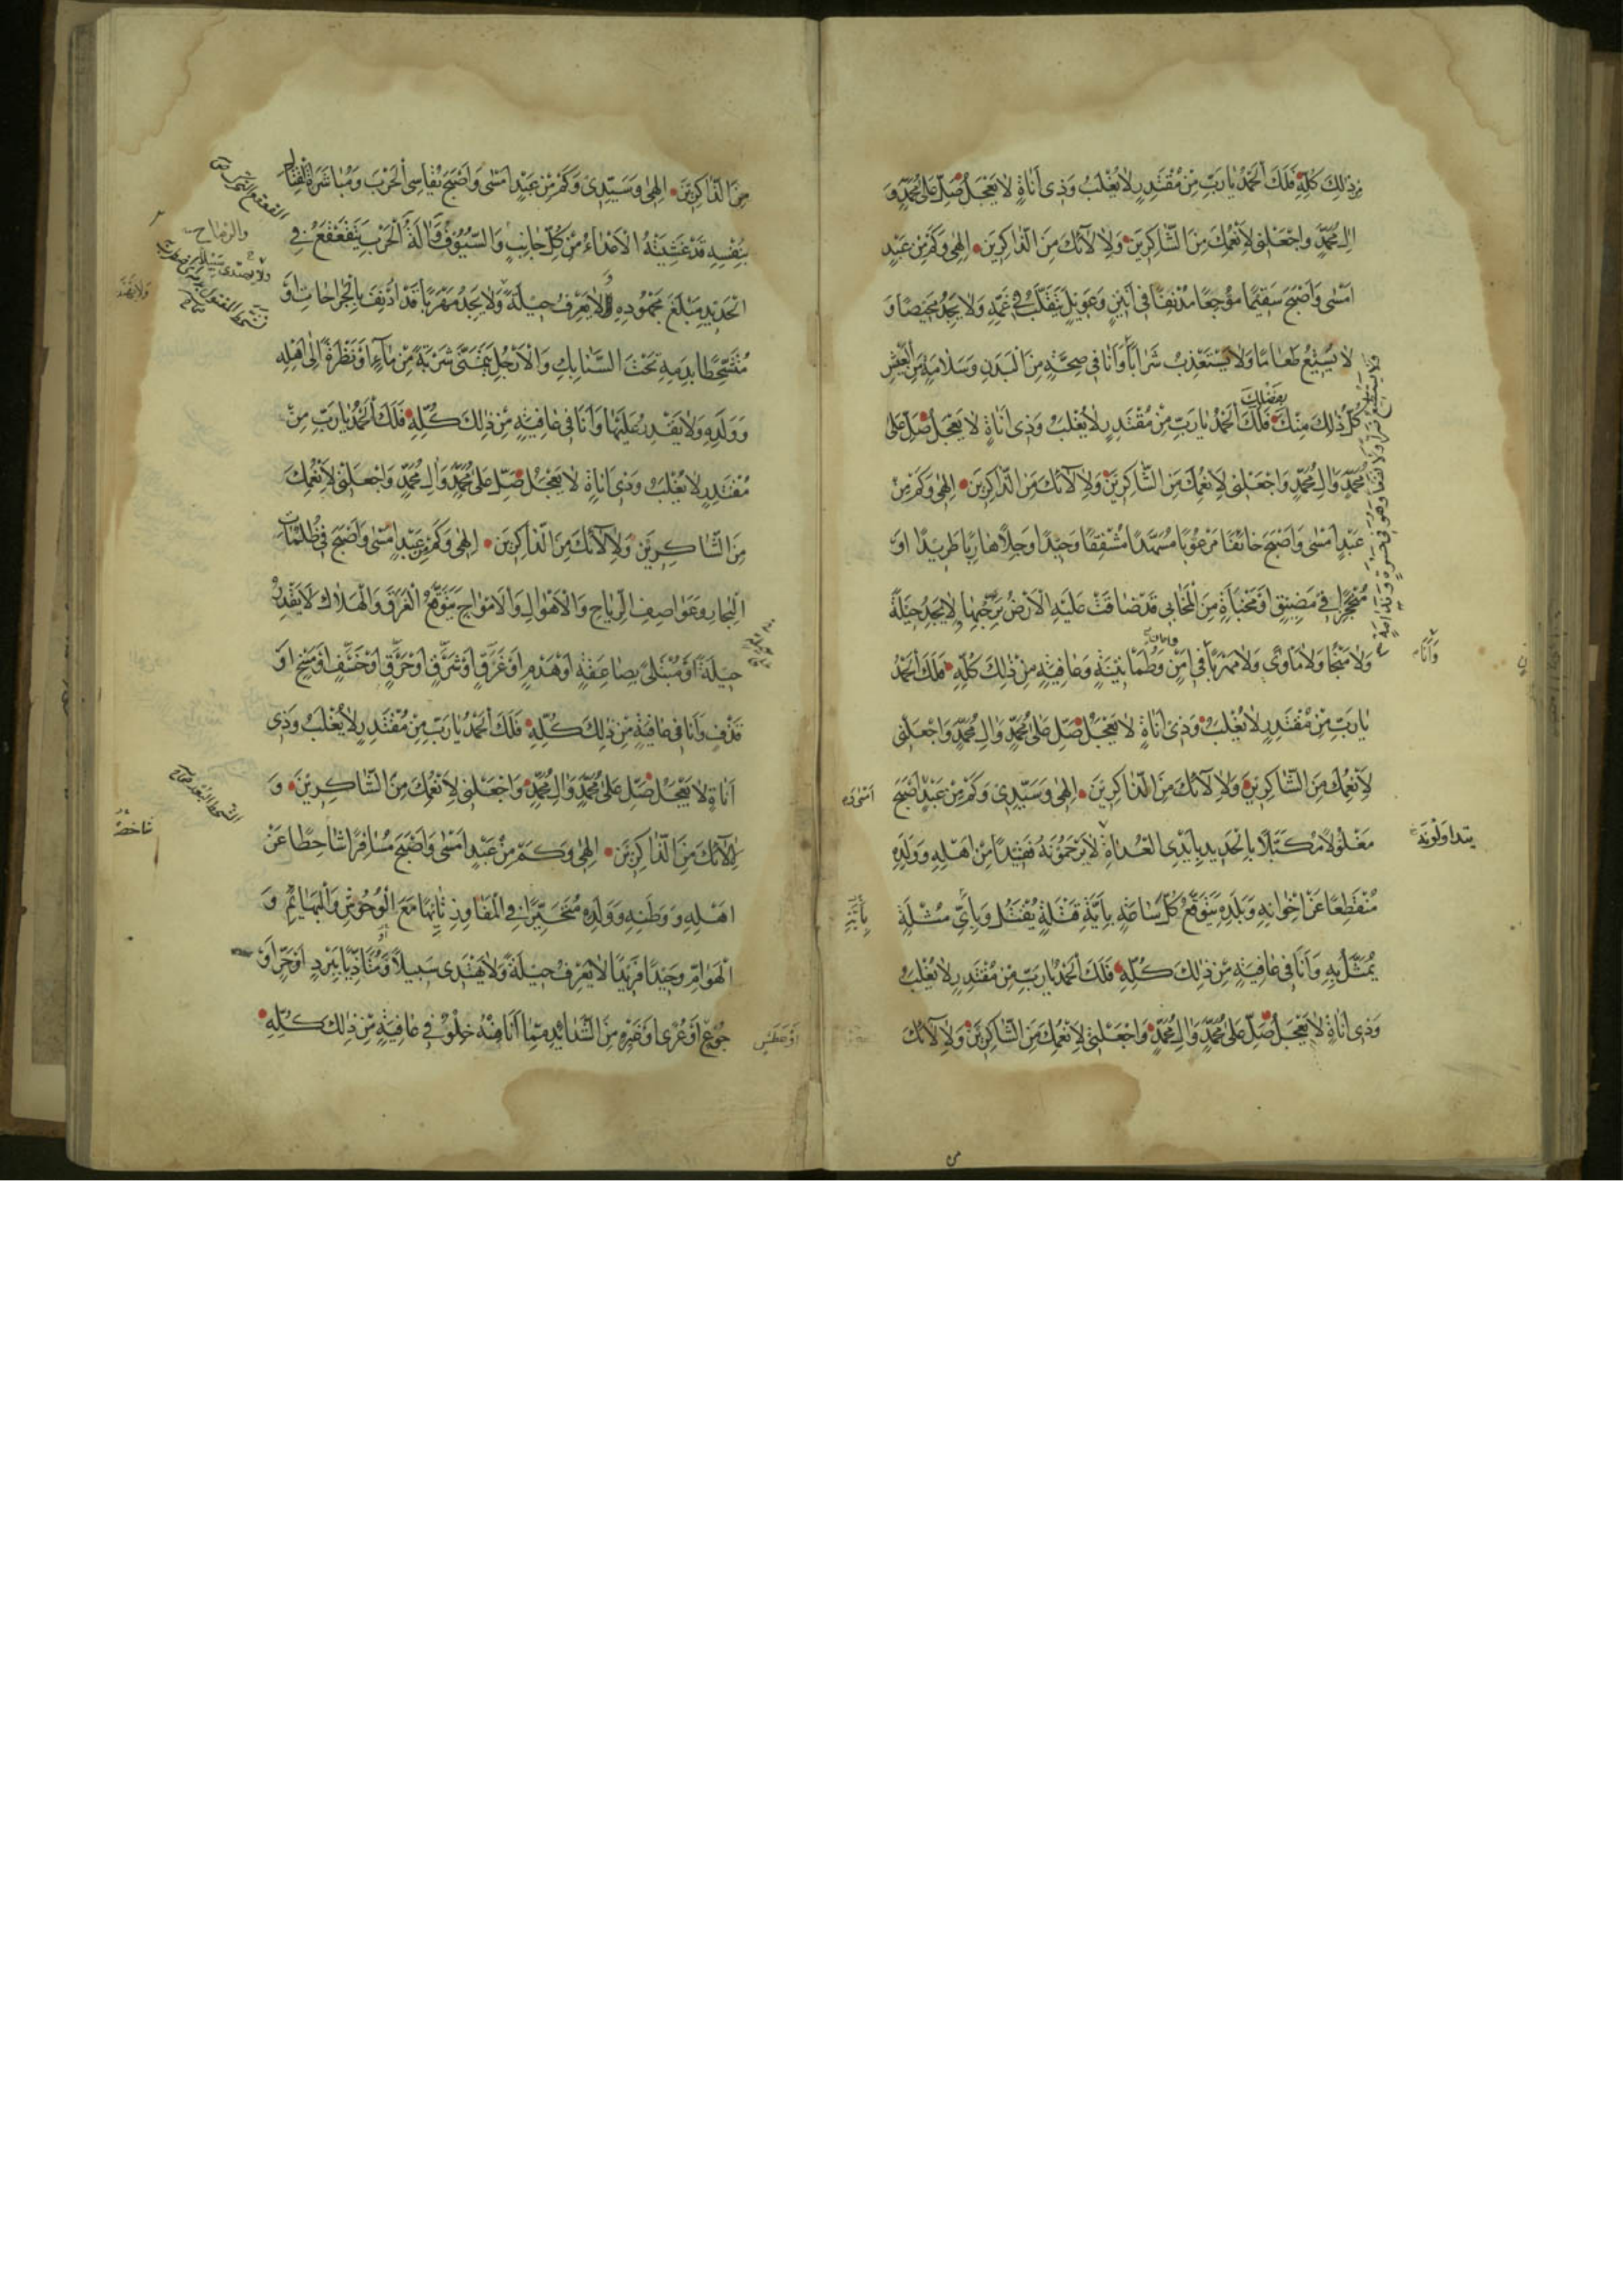 مِنْ ذٰلِكَ كُلِّهِ فَلَكَ الْحَمْدُ يٰا رَبِّ مِنْ مُقْتَدِرٍ لٰا يُغْلَبُ وَذِى اَنٰاةٍ لٰا يَعْجَلُ صَلِّ عَلىٰ مُحَمَّدٍ وَ
اٰلِ مُحَمَّدٍ وَاجْعَلْنِى لِاَنْعُمِكَ مِنَ الشّٰاكِرِيْنَ وَلِاٰلٰائِكَ مِنَ الذّٰاكِرِيْنَ اِلٰهِى وَكَمْ مِنْ عَبْدٍ
اَمْسٰى وَاَصْبَحَ سَقِيْمًا مُوْجَعًا مُدْنِفًا فِى اَنِيْنٍ وَعَوِيْلٍ يَتَقَلَّبُ فِى غَمِّهِ وَلٰا يَجِدُ مَحِيْصًا وَ
لٰا يُسِيْغُ طَعٰامًا وَلٰا يَسْتَعْذِبُ شَرٰابًا وَاَنٰا فِى صِحَّةٍ مِنَ الْبَدَنِ وَسَلٰامَةٍ مِنَ الْعَيْشِ
بِفَضْلِكَ
كُلُّ ذٰلِكَ مِنْكَ فَلَكَ الْحَمْدُ يٰا رَبِّ مِنْ مُقْتَدِرٍ لٰا يُغْلَبُ وَذِى اَنٰاةٍ لٰا يَعْجَلُ صَلِّ عَلىٰ
مُحَمَّدٍ وَاٰلِ مُحَمَّدٍ وَاجْعَلْنِى لِاَنْعُمِكَ مِنَ الشّٰاكِرِيْنَ وَلِاٰلٰائِكَ مِنَ الذّٰاكِرِيْنَ اِلٰهِى وَكَمْ مِنْ
عَبْدٍ اَمْسٰى وَاَصْبَحَ خٰائِفًا مَرْعُوْبًا مُسَهَّدًا مُشْفِقًا وَحِيْدًا وَجِلًا هٰارِبًا طَرِيْدًا اَوْ
مُنْحَجِرًا فِى مَضِيْقٍ اَوْ مَخْبَأَةٍ مِنَ الْمَخٰابِى قَدْ ضٰاقَتْ عَلَيْهِ الْاَرْضُ بِرُحْبِهٰا لٰا يَجِدُ حِيْلَةً
وَلٰا مَنْجًا وَلٰا مَاْوًى وَلٰا مَهْرَبًا فِى اَمْنٍ وَطُمَاْنِيْنَةٍ وَعٰافِيَةٍ مِنْ ذٰلِكَ كُلِّهِ فَلَكَ الْحَمْدُ
وَاَنَا
يٰا رَبِّ مِنْ مُقْتَدِرٍ لٰا يُغْلَبُ وَذِى اَنٰاةٍ لٰا يَعْجَلُ صَلِّ عَلىٰ مُحَمَّدٍ وَاٰلِ مُحَمَّدٍ وَاجْعَلْنِى
لِاَنْعُمِكَ مِنَ الشّٰاكِرِيْنَ وَلِاٰلٰائِكَ مِنَ الذّٰاكِرِيْنَ اِلٰهِى وَسَيِّدِى وَكَمْ مِنْ عَبْدٍ اَصْبَحَ
مَغْلُوْلًا مُكَبَّلًا بِالْحَدِيْدِ بِاَيْدِى الْعُدٰاةِ لٰا يَرْحَمُوْنَهُ فَقِيْدًا مِنْ اَهْلِهِ وَوَلَدِهِ
يتداولونه
مُنْقَطِعًا عَنْ اِخْوٰانِهِ وَبَلَدِهِ يَتَوَقَّعُ كُلَّ سٰاعَةٍ بِاَيَّةِ قِتْلَةٍ يُقْتَلُ وَبِاَىِّ مُثْلَةٍ
بِاَيَّةِ
يُمَثَّلُ بِهِ وَاَنٰا فِى عٰافِيَةٍ مِنْ ذٰلِكَ كُلِّهِ فَلَكَ الْحَمْدُ يٰا رَبِّ مِنْ مُقْتَدِرٍ لٰا يُغْلَبُ
وَذِى اَنٰاةٍ لٰا يَعْجَلُ صَلِّ عَلىٰ مُحَمَّدٍ وَاٰلِ مُحَمَّدٍ وَاجْعَلْنِى لِاَنْعُمِكَ مِنَ الشّٰاكِرِيْنَ وَلِاٰلٰائِكَ
مِنَ الذّٰاكِرِيْنَ اِلٰهِى وَسَيِّدِى وَكَمْ مِنْ عَبْدٍ اَمْسٰى وَاَصْبَحَ يُقٰاسِى الْحَرْبَ وَمُبٰاشَرَةَ الْقِتٰالِ
بِنَفْسِهِ قَدْ غَشِيَتْهُ الْاَعْدٰاءُ مِنْ كُلِّ جٰانِبٍ وَالسُّيُوْفُ وَاٰلَةُ الْحَرْبِ يَتَقَعْقَعُ فِى
والرماح
الْحَدِيْدِ مَبْلَغَ مَجْهُوْدِهِ لٰا يَعْرِفُ حِيْلَةً وَلٰا يَجِدُ مَهْرَبًا قَدْ اُدْنِفَ بِالْجِرٰاحٰاتِ اَوْ
مُتَشَحِّطًا بِدَمِهِ تَحْتَ السَّنٰابِكِ وَالْاَرْجُلِ يَتَمَنّٰى شَرْبَةً مِنْ مٰاءٍ اَوْ نَظْرَةً اِلىٰ اَهْلِهِ
وَوَلَدِهِ وَلٰا يَقْدِرُ عَلَيْهٰا وَاَنٰا فِى عٰافِيَةٍ مِنْ ذٰلِكَ كُلِّهِ فَلَكَ الْحَمْدُ يٰا رَبِّ مِنْ
مُقْتَدِرٍ لٰا يُغْلَبُ وَذِى اَنٰاةٍ لٰا يَعْجَلُ صَلِّ عَلىٰ مُحَمَّدٍ وَاٰلِ مُحَمَّدٍ وَاجْعَلْنِى لِاَنْعُمِكَ
مِنَ الشّٰاكِرِيْنَ وَلِاٰلٰائِكَ مِنَ الذّٰاكِرِيْنَ اِلٰهِى وَكَمْ مِنْ عَبْدٍ اَمْسٰى وَاَصْبَحَ فِى ظُلُمٰاتِ
الْبِحٰارِ وَعَوٰاصِفِ الرِّيٰاحِ وَالْاَهْوٰالِ وَالْاَمْوٰاجِ يَتَوَقَّعُ الْغَرَقَ وَالْهَلٰاكَ لٰا يَقْدِرُ
حِيْلَةً اَوْ مُبْتَلىً بِصٰاعِقَةٍ اَوْ هَدْمٍ اَوْ غَرَقٍ اَوْ شَرَقٍ اَوْ حَرَقٍ اَوْ خَسْفٍ اَوْ مَسْخٍ اَوْ
قَذْفٍ وَاَنٰا فِى عٰافِيَةٍ مِنْ ذٰلِكَ كُلِّهِ فَلَكَ الْحَمْدُ يٰا رَبِّ مِنْ مُقْتَدِرٍ لٰا يُغْلَبُ وَذِى
اَنٰاةٍ لٰا يَعْجَلُ صَلِّ عَلىٰ مُحَمَّدٍ وَاٰلِ مُحَمَّدٍ وَاجْعَلْنِى لِاَنْعُمِكَ مِنَ الشّٰاكِرِيْنَ وَ
لِاٰلٰائِكَ مِنَ الذّٰاكِرِيْنَ اِلٰهِى وَكَمْ مِنْ عَبْدٍ اَمْسٰى وَاَصْبَحَ مُسٰافِرًا شٰاحِطًا عَنْ
شاخصا
اَهْلِهِ وَوَطَنِهِ وَوَلَدِهِ مُتَحَيِّرًا فِى الْمَفٰاوِزِ تٰائِهًا مَعَ الْوُحُوْشِ وَالْبَهٰائِمِ وَ
الْهَوٰامِّ وَحِيْدًا فَرِيْدًا لٰا يَعْرِفُ حِيْلَةً وَلٰا يَهْتَدِى سَبِيْلًا وَمُتَاَذِّيًا بِبَرْدٍ اَوْ حَرٍّ اَوْ
جُوْعٍ اَوْ عُرْىٍ اَوْ غَيْرِهِ مِنَ الشَّدٰائِدِ مِمّٰا اَنٰا مِنْهُ خِلْوٌ فِى عٰافِيَةٍ مِنْ ذٰلِكَ كُلِّهِ
اَوْ عَطَشٍ